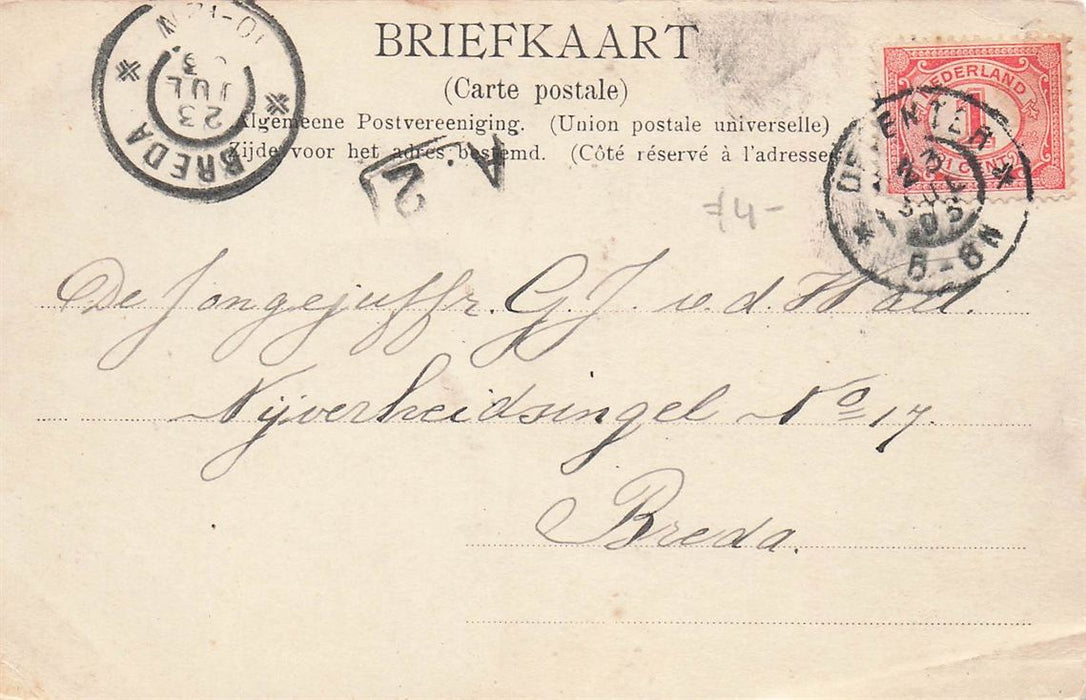 BRIEFKAART
(Carte postale)
Algemeene Postvereeniging. (Union postale universelle)
Zijde voor het adres bestemd. (Côté réservé à l'adresse
BREDA
23
JUL
10-12
NEDERLAND
1
1 CENT
DEVENTER
23
JUL
03
5-6N
V.
2
f4-
De Jongejuffr. G. J. v. d. Wall.
Nijverheidsingel No 17.
Breda.